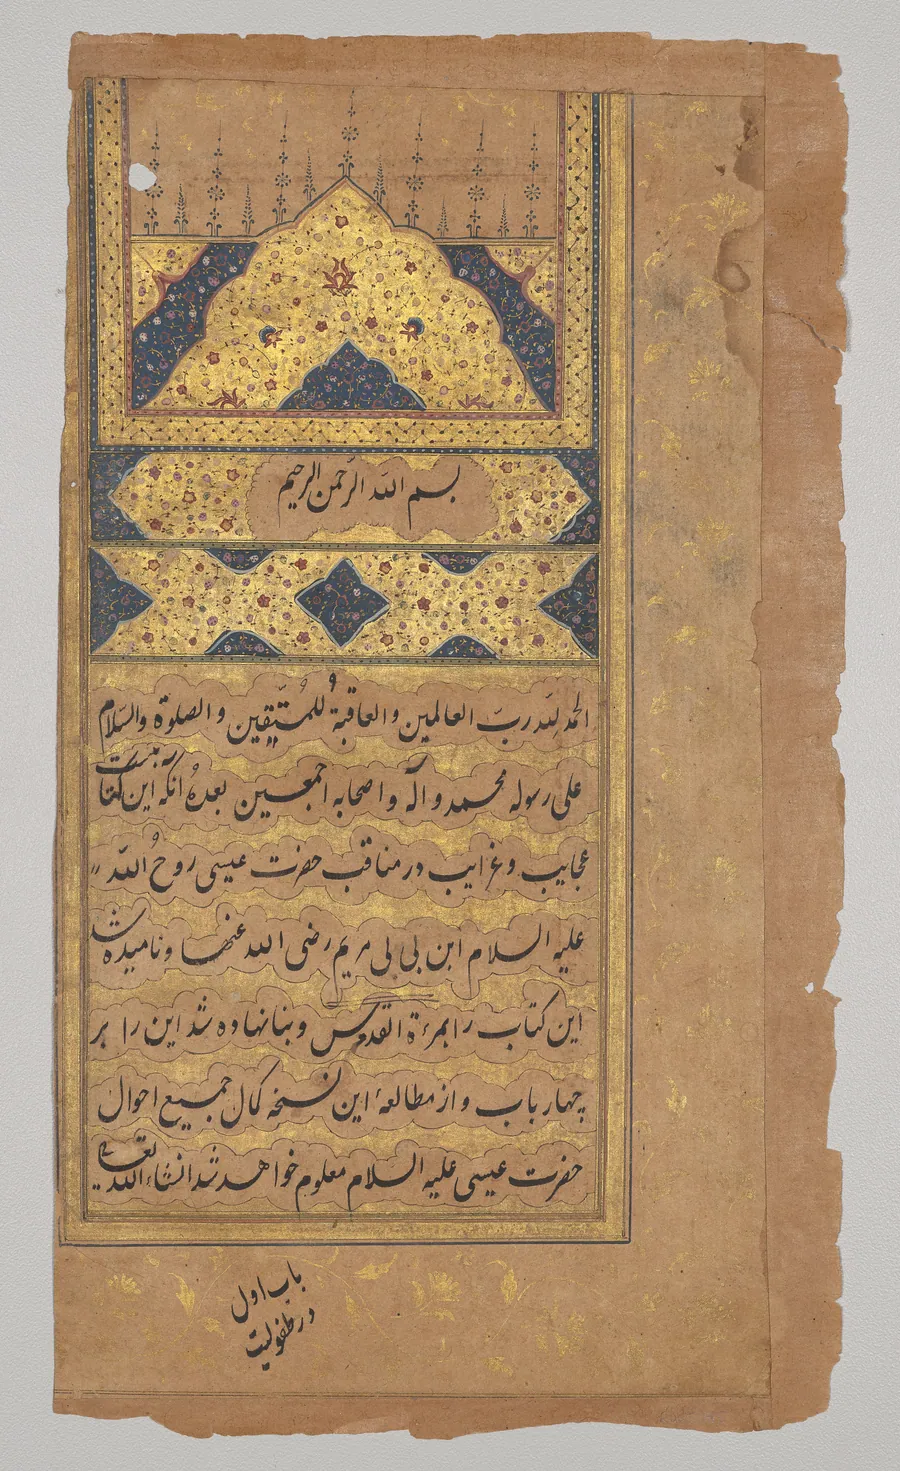 بسم الله الرّحمن الرحیم
الحمد لله ربّ العالمین والعاقبةُ للمتّقین و الصلوة والسّلام
علی رسوله محمد و آله و اصحابه اجمعین بعدهُ آنکه این کتابیست
عجایب و غرایب در مناقب حضرت عیسی روحُ اللّه
علیه السلام ابن بی بی مریم رضی الله عنها و نامیده شد
این کتاب را بمرءة القدس و بنا نهاده شد این را بر
چهار باب و از مطالعهٔ این نسخه کمال جمیع احوال
حضرت عیسی علیه السلام معلوم خواهد شد انشاء الله تعالی
باب اول
در طفولیت